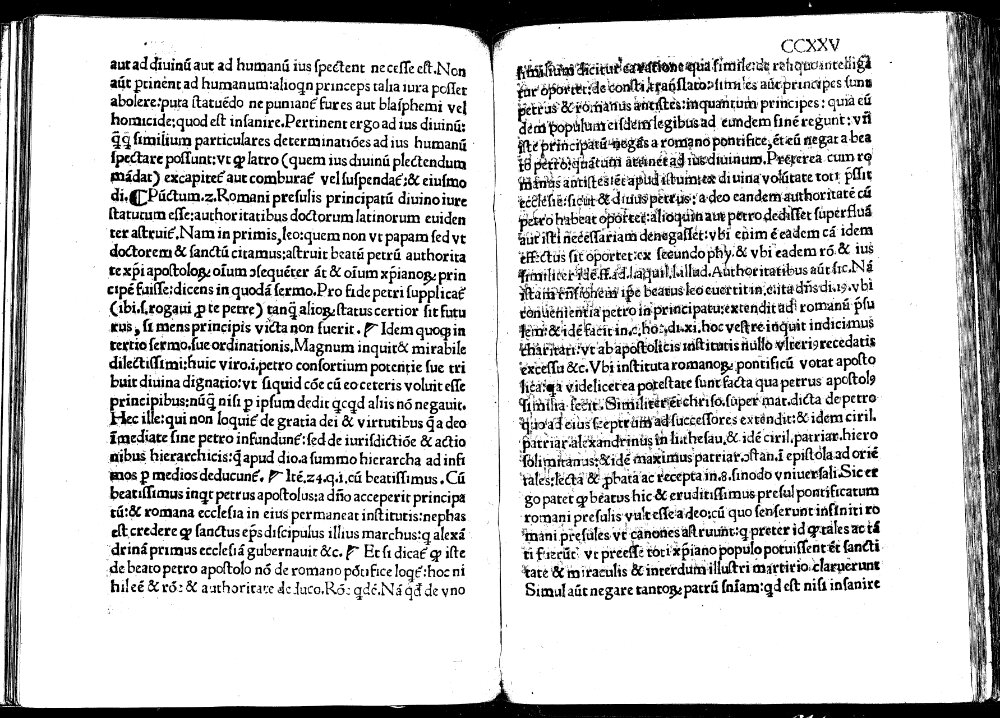 aut ad diuinũ aut ad humanũ ius spectent necesse est. Non
aũt ꝑtinent ad humanum: alioqñ princeps talia iura posset
abolere: puta statuẽdo ne punianẽ fures aut blasphemi vel
homicide: quod est insanire. Pertinent ergo ad ius diuinũ:
q̃q̃ similium particulares determinatiões ad ius humanũ
spectare possunt: vt ꝙ latro (quem ius diuinũ plectendum
mãdat) excapiteẽ aut comburaẽ vel suspendaẽ: & eiusmo
di. ¶ Pũctum.2. Romani presulis principatũ diuino iure
statutum esse: authoritatibus doctorum latinorum euiden
ter astruiẽ. Nam in primis, leo: quem non vt papam sed vt
doctorem & sanctũ citamus: astruit beatũ petrũ authorita
te xp̃i apostoloꝝ oĩum ɔsequẽter ãt & oĩum xp̃ianoꝝ prin
cipẽ fuisse: dicens in quodã sermo. Pro fide petri supplicaẽ
(ibi.s. rogaui ꝓ te petre) tanq̃ alioꝝ status certior sit futu
rus, si mens principis victa non fuerit. ¶ Idem quoqꝫ in
tertio sermo. sue ordinationis. Magnum inquit & mirabile
dilectissimi: huic viro.i. petro consortium potentie sue tri
buit diuina dignatio: vt si quid cõe cũ eo ceteris voluit esse
principibus: nũq̃ nisi ꝑ ipsum dedit qcqd aliis nõ negauit.
Hec ille: qui non loquiẽ de gratia dei & virtutibus q̃ a deo
ĩmediate sine petro infundunẽ: sed de iurisdictiõe & actio
nibus hierarchicis: q̃ apud dio. a summo hierarcha ad infi
mos ꝑ medios deducunẽ. ¶ Itẽ.24.q.i.cũ beatissimus. Cũ
beatissimus inqt petrus apostolus: a dño acceperit principa
tũ: & romana ecclesia in eius permaneat institutis: nephas
est credere ꝙ sanctus ep̃s discipulus illius marchus: q alexã
drinã primus ecclesiã gubernauit &c. ¶ Et si dicaẽ ꝙ iste
de beato petro apostolo nõ de romano põtifice loqẽ: hoc ni
hil eẽ & rõ: & authoritate deduco. Rõ: qdẽ. Nã qđ de vno
CCXXV
similium dicitur ea ratione quia simile: de reliquo intelligã
tur oportet: de consti. translato: similes aũt principes sunt
petrus & romanus antistes: inquantum principes: quia eũ
dem populum eisdem legibus ad eundem finẽ regunt: vñ
iste principatũ negãs a romano pontifice, et eũ negat a bea
to petro: quãtum attinet ad ius diuinum. Preterea cum ro
manus antistes: et apud istum: ex diuina volũtate toti p̃sit
ecclesie: sicut & diuus petrus: a deo eandem authoritatẽ cũ
petro habeat oportet: alioquin aut petro dedisset superfluã
aut isti necessariam denegasset: vbi enim ẽ eadem cã idem
effectus sit oportet: ex secundo phy. & vbi eadem rõ & ius
similiter idẽ. ff. ad.l.aquil.l.illud. Authoritatibus aũt sic. Nã
istam respõsionem ipe beatus leo euertit in.c.ita dñs di.19. vbi
conuenientia petro in principatu: extendit ad romanũ p̃su
lem: & idẽ facit in.c.hoc.di.xi. hoc vestre inquit indicimus
charitati: vt ab apostolicis institutis nullo vlteri9 recedatis
excessu &c. Vbi instituta romanoꝝ pontificũ votat aposto
lica: qa videlicet ea potestate sunt facta qua petrus apostol9
similia fecit. Similiter et chriso. super mat. dicta de petro
quo ad eius sceptrum ad successores extendit: & idem ciril.
patriar. alexandrinus in li. thesau. & idẽ ciril. patriar. hiero
solimitanus: & idẽ maximus patriar. ɔstan. ĩ epistola ad oriẽ
tales: lecta & ꝓbata ac recepta in.8. sinodo vniuersali. Sic er
go patet ꝙ beatus hic & eruditissimus presul pontificatum
romani presulis vult esse a deo: cũ quo senserunt infiniti ro
mani presules vt canones astruunt: q preter id ꝙ tales ac tã
ti fierũt vt preesse toti xp̃iano populo potuissent et sancti
tate & miraculis & interdum illustri martirio claruerunt
Simul aũt negare tantoꝝ patrũ sñiam: qđ est nisi insanire